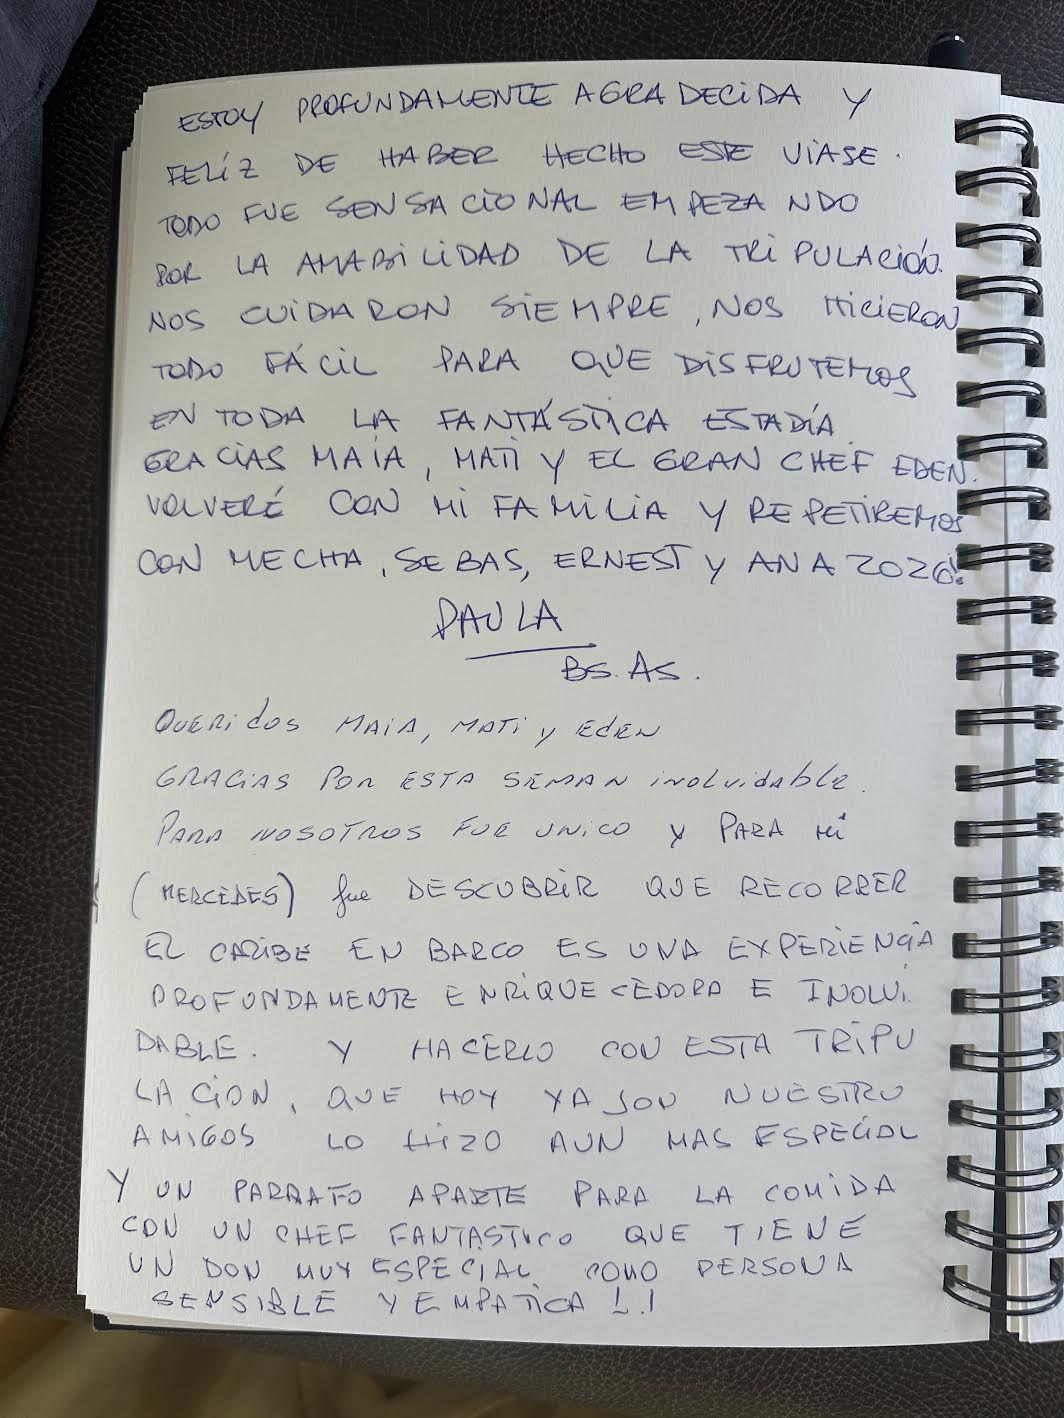 ESTOY PROFUNDAMENTE AGRADECIDA Y
FELÍZ DE HABER HECHO ESTE VIAJE.
TODO FUE SENSACIONAL EMPEZANDO
POR LA AMABILIDAD DE LA TRIPULACIÓN.
NOS CUIDARON SIEMPRE, NOS HICIERON
TODO FÁCIL PARA QUE DISFRUTEMOS
EN TODA LA FANTÁSTICA ESTADÍA.
GRACIAS MAIA, MATI Y EL GRAN CHEF EDEN.
VOLVERÉ CON MI FAMILIA Y REPETIREMOS
CON MECHA, SEBAS, ERNEST Y ANA 2026!
PAULA
BS. AS.
QUERIDOS MAIA, MATI Y EDEN
GRACIAS POR ESTA SEMAN INOLVIDABLE.
PARA NOSOTROS FUE UNICO Y PARA MÍ
(MERCEDES) fue DESCUBRIR QUE RECORRER
EL CARIBE EN BARCO ES UNA EXPERIENCIA
PROFUNDAMENTE ENRIQUECEDORA E INOLVI
DABLE. Y HACERLO CON ESTA TRIPU
LACION, QUE HOY YA SON NUESTRO
AMIGOS LO HIZO AUN MAS ESPECIAL
Y UN PARRAFO APARTE PARA LA COMIDA
CON UN CHEF FANTASTICO QUE TIENE
UN DON MUY ESPECIAL COMO PERSONA
SENSIBLE Y EMPATICA !.!